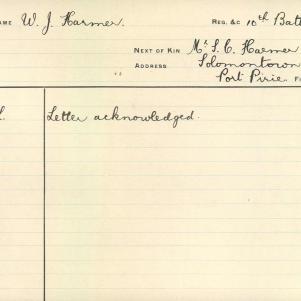 NAME W. J. Harmer. REG. &C 10th Batt
NEXT OF KIN Mr S. C. Harmer
ADDRESS Solomontown
Port Pirie
Letter acknowledged.